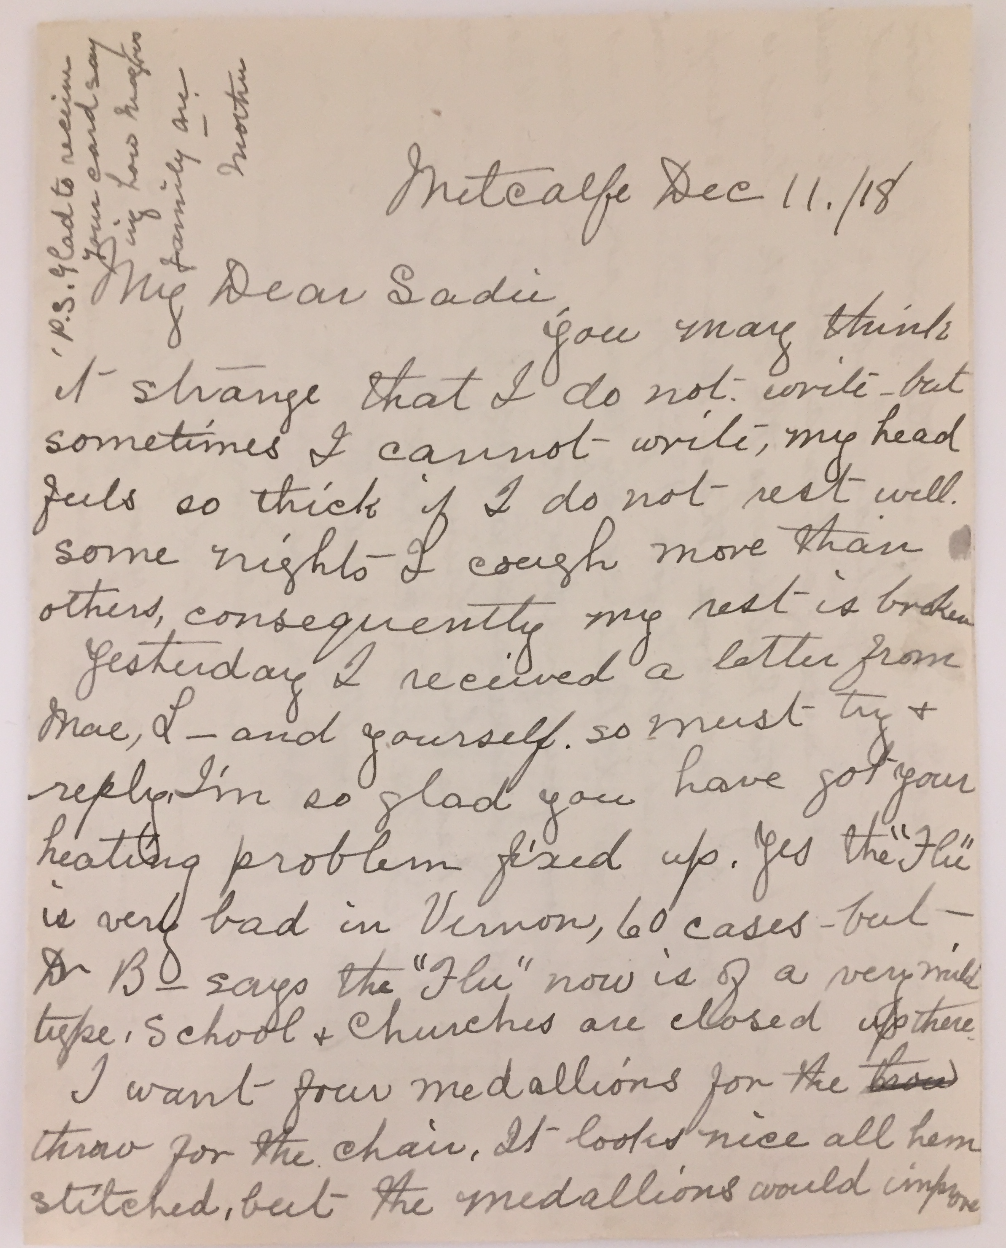 Metcalfe Dec 11./18
My Dear Sadie,
you may think
it strange that I do not write - but
sometimes I cannot write, my head
feels so thick if I do not rest well.
some nights I cough more than
others, consequently my rest is broken
Yesterday I received a letter from
Mae, L - and yourself. so must try +
reply. I'm so glad you have got your
heating problem fixed up. Yes the "Flu"
is very bad in Vernon, 60 cases - but -
Dr B - says the "Flu" now is of a very mild
type. School + Churches are closed up there.
I want four medallions for the
throw for the chair. It looks nice all hem
stitched, but the medallions would improve
P.S. Glad to receive
your card say
ing how
family are. -
Mother